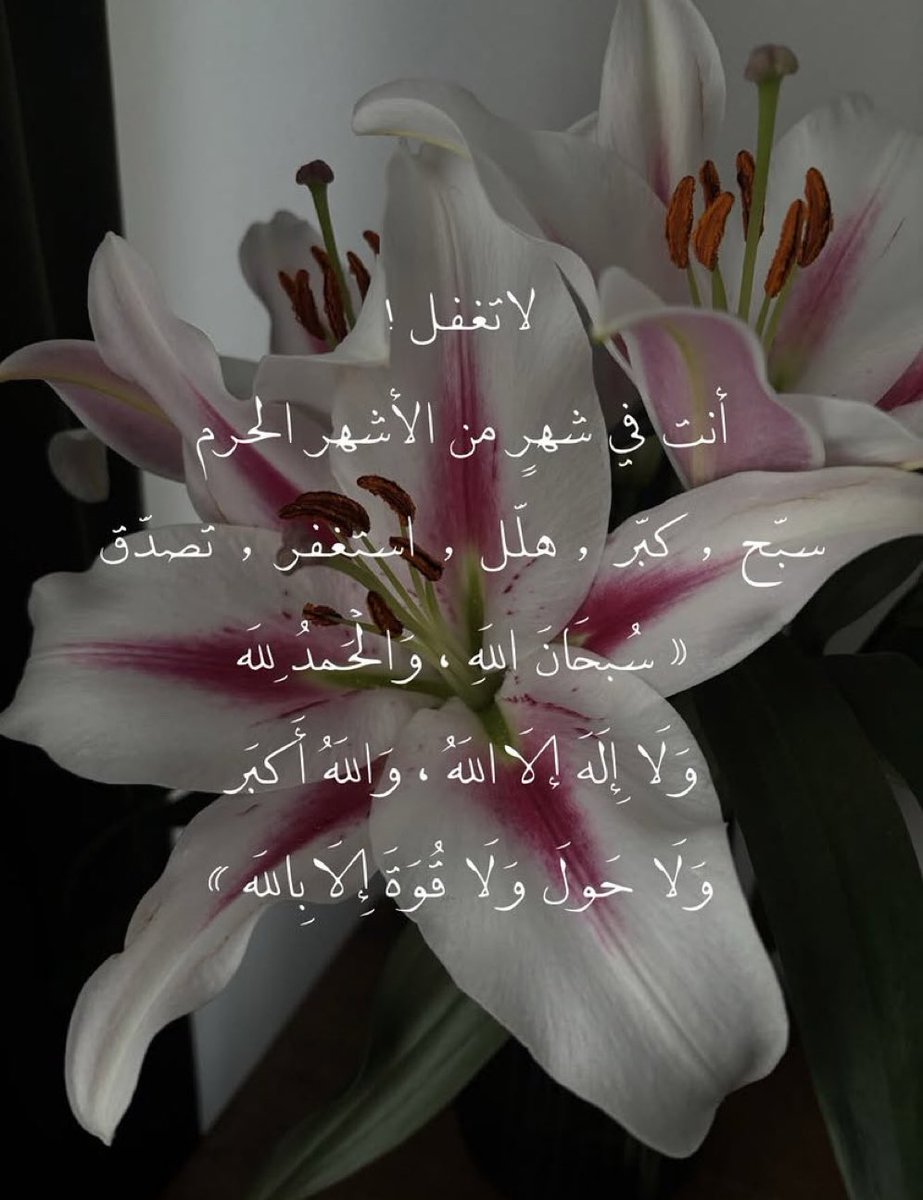 لاتغفل !
أنت في شهرٍ من الأشهر الحرم
سبّح , كبّر , هلّل , استغفر , تصدّق
« سُبحَانَ اللهِ ، وَالْحَمدُ لِلهَ
وَلَا إِلَهَ إلَا اللهُ ، وَاللهُ أَكبَر
وَلَا حَولَ وَلَا قُوَةَ إِلَا بِاللهَ »